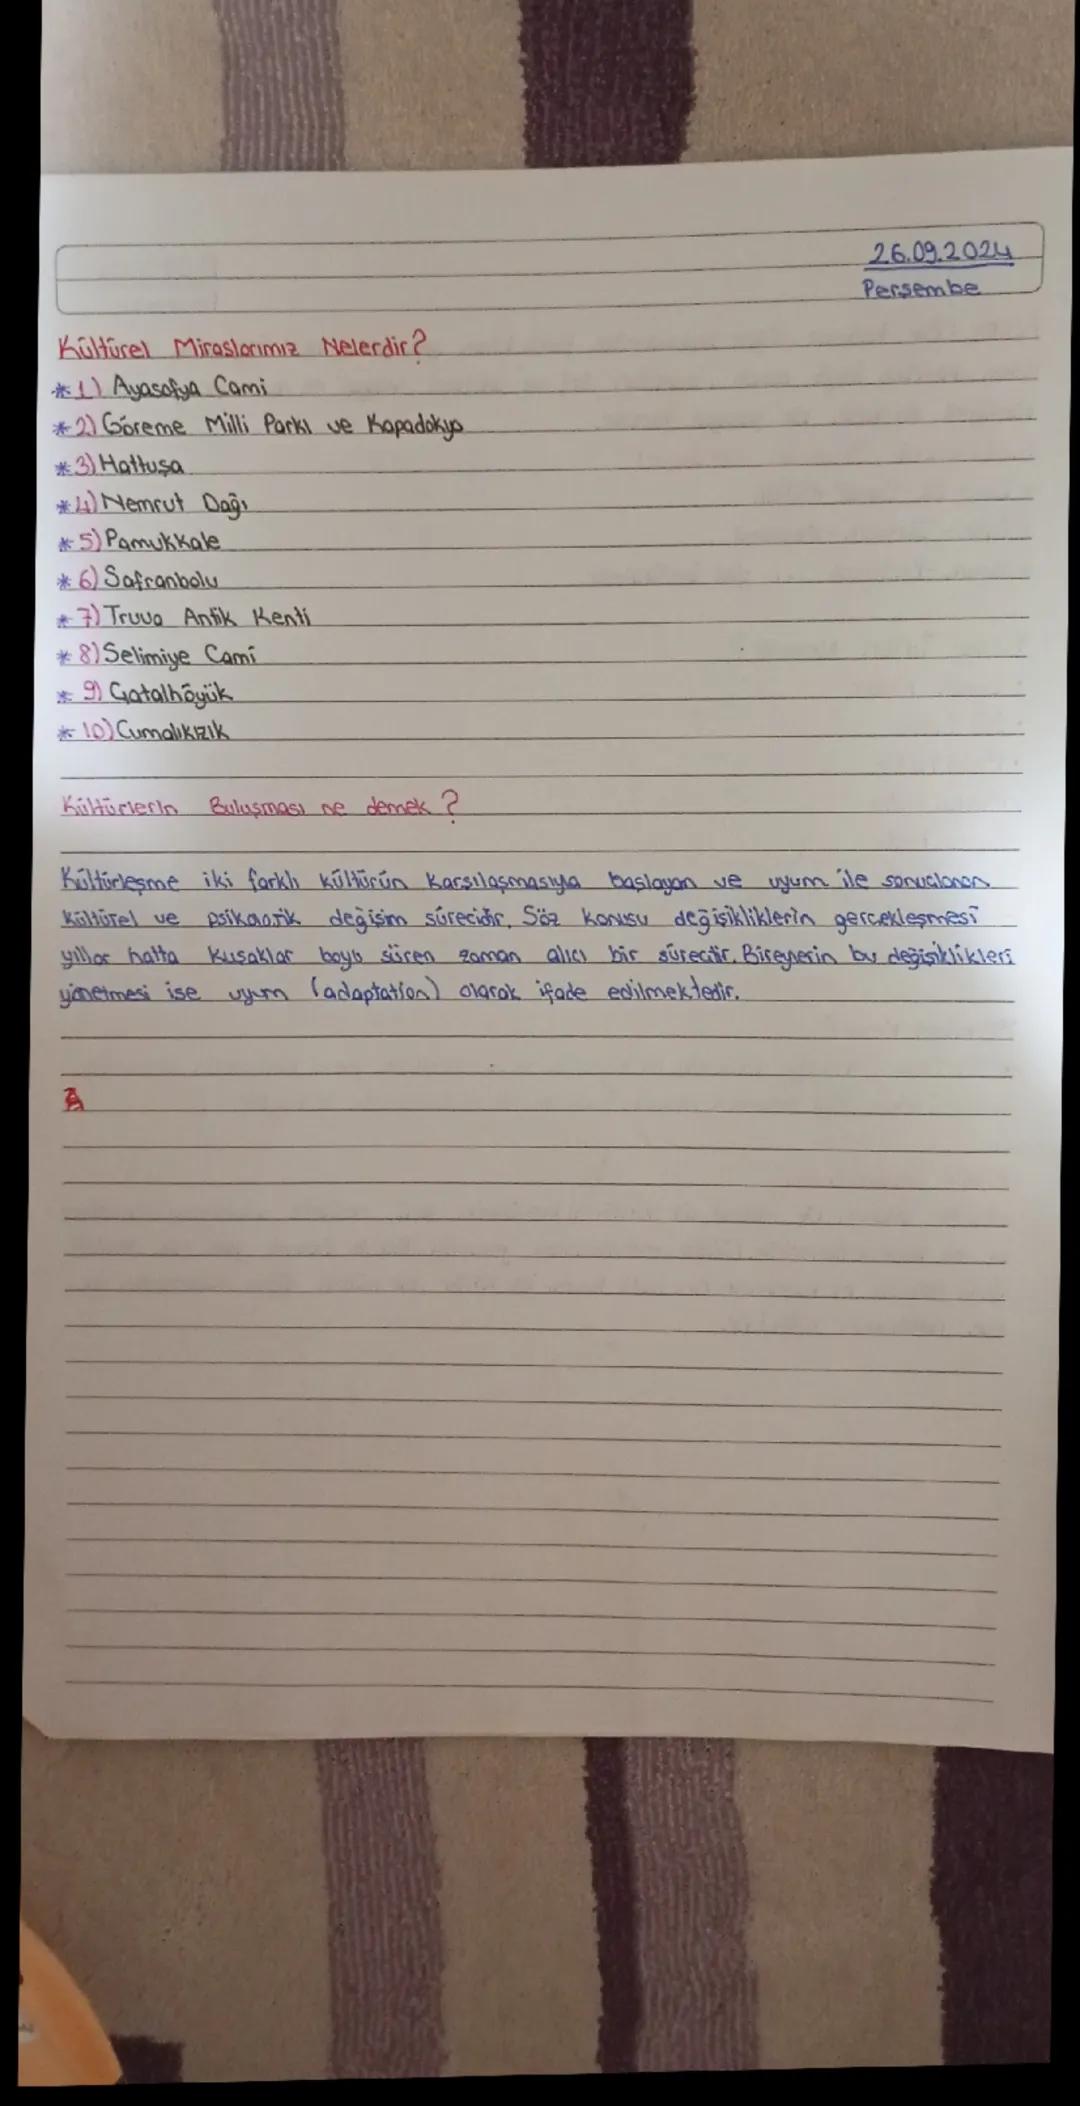 26.09.2024
Perşembe
Kültürel Miraslarımız Nelerdir?
* 1) Ayasofya Cami
* 2) Göreme Milli Parkı ve Kapadokya
* 3) Hattuşa
* 4) Nemrut Dağı
* 5) Pamukkale
* 6) Safranbolu
* 7) Truva Antik Kenti
* 8) Selimiye Cami
* 9) Çatalhöyük
* 10) Cumalıkızık
Kültürlerin Buluşması ne demek?
Kültürleşme iki farklı kültürün karşılaşmasıyla başlayan ve uyum ile sonuclanan
kültürel ve değişim sürecidir. Söz konusu değişikliklerin gercekleşmesi
yıllar hatta kuşaklar boyu süren zaman alıcı bir sürectir. Bireylerin bu değişiklikleri
yönetmesi ise uyum (adaptation) olarak ifade edilmektedir.